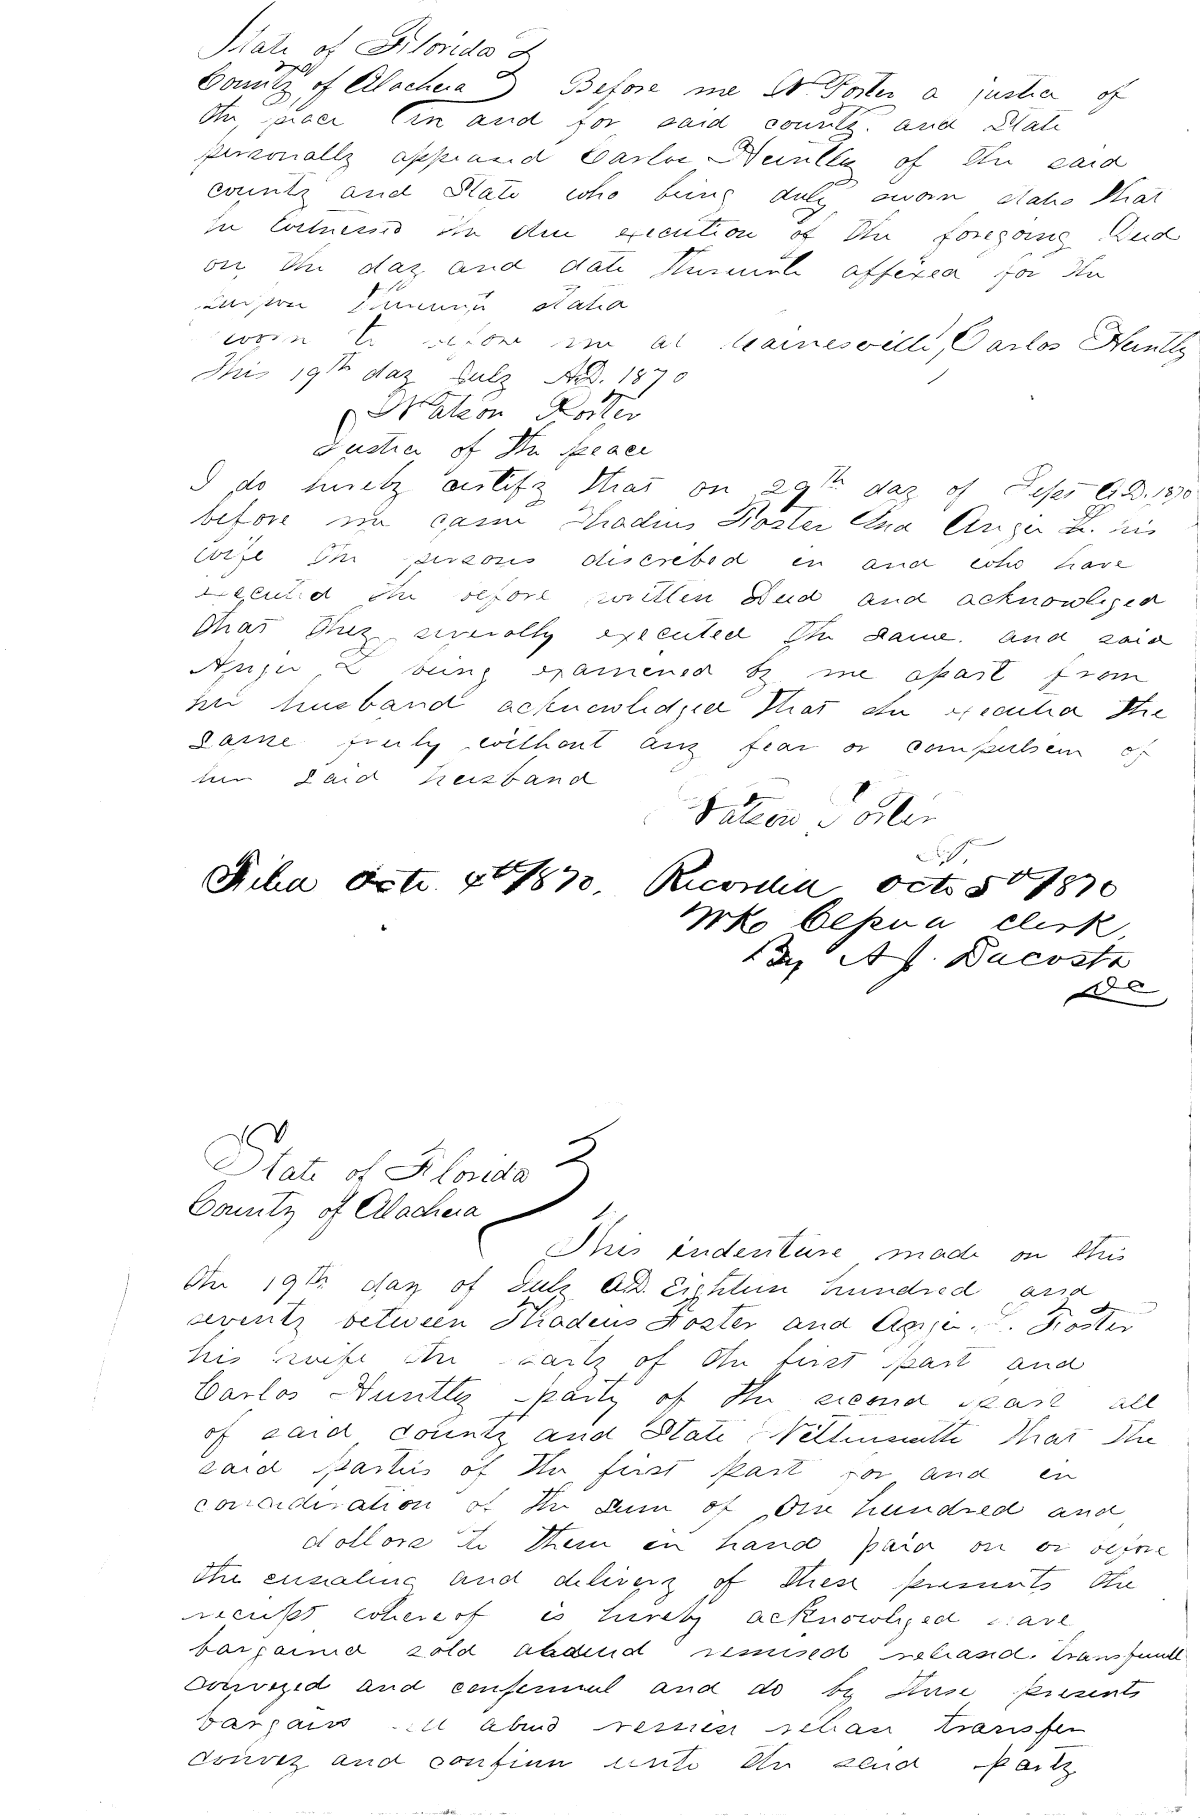 State of Florida
County of Alachua Before me W. Foster a justice of
the peace in and for said county. and State
personally appeared Carlos Huntly of the said
county and State who being duly sworn states that
he witnessed the due execution of the foregoing Deed
on the day and date therewith affixed for the
purpose therein stated
sworn to before me at Gainesville, Carlos Huntly
This 19th day July A.D. 1870
Watson Foster
Justice of the peace
I do hereby certify that on 29th day of Sept A.D. 1870
before me came Thadius Foster And Angie L. his
wife the persons discribed in and who have
executed the before written Deed and acknowliged
that they severally executed the same. and said
Angie L being examined by me apart from
her husband acknowlidged that she executed the
same freely without any fear or compulsion of
her said husband
Watson Foster
J.P.
Filed Octr. 4th 1870. Recorded Oct. 5th 1870
Wk Cessna clerk.
By A J. Dacosta
DC
State of Florida
County of Alachua
This indenture made on this
the 19th day of July A.D. Eighteen hundred and
seventy between Thadeus Foster and Angie. L. Foster
his wife the party of the first part and
Carlos Huntly party of the second part all
of said county and State Wittnesseth that the
said parties of the first part for and in
concideration of the sum of One hundred and
dollors to them in hand paid on or before
the ensealing and delivery of these presents the
receipt whereof is hereby acknowliged have
bargained sold remised released. transferred
conveyed and confermed and do by these presents
bargain sell remise release transfer
convey and confirm unto the said party